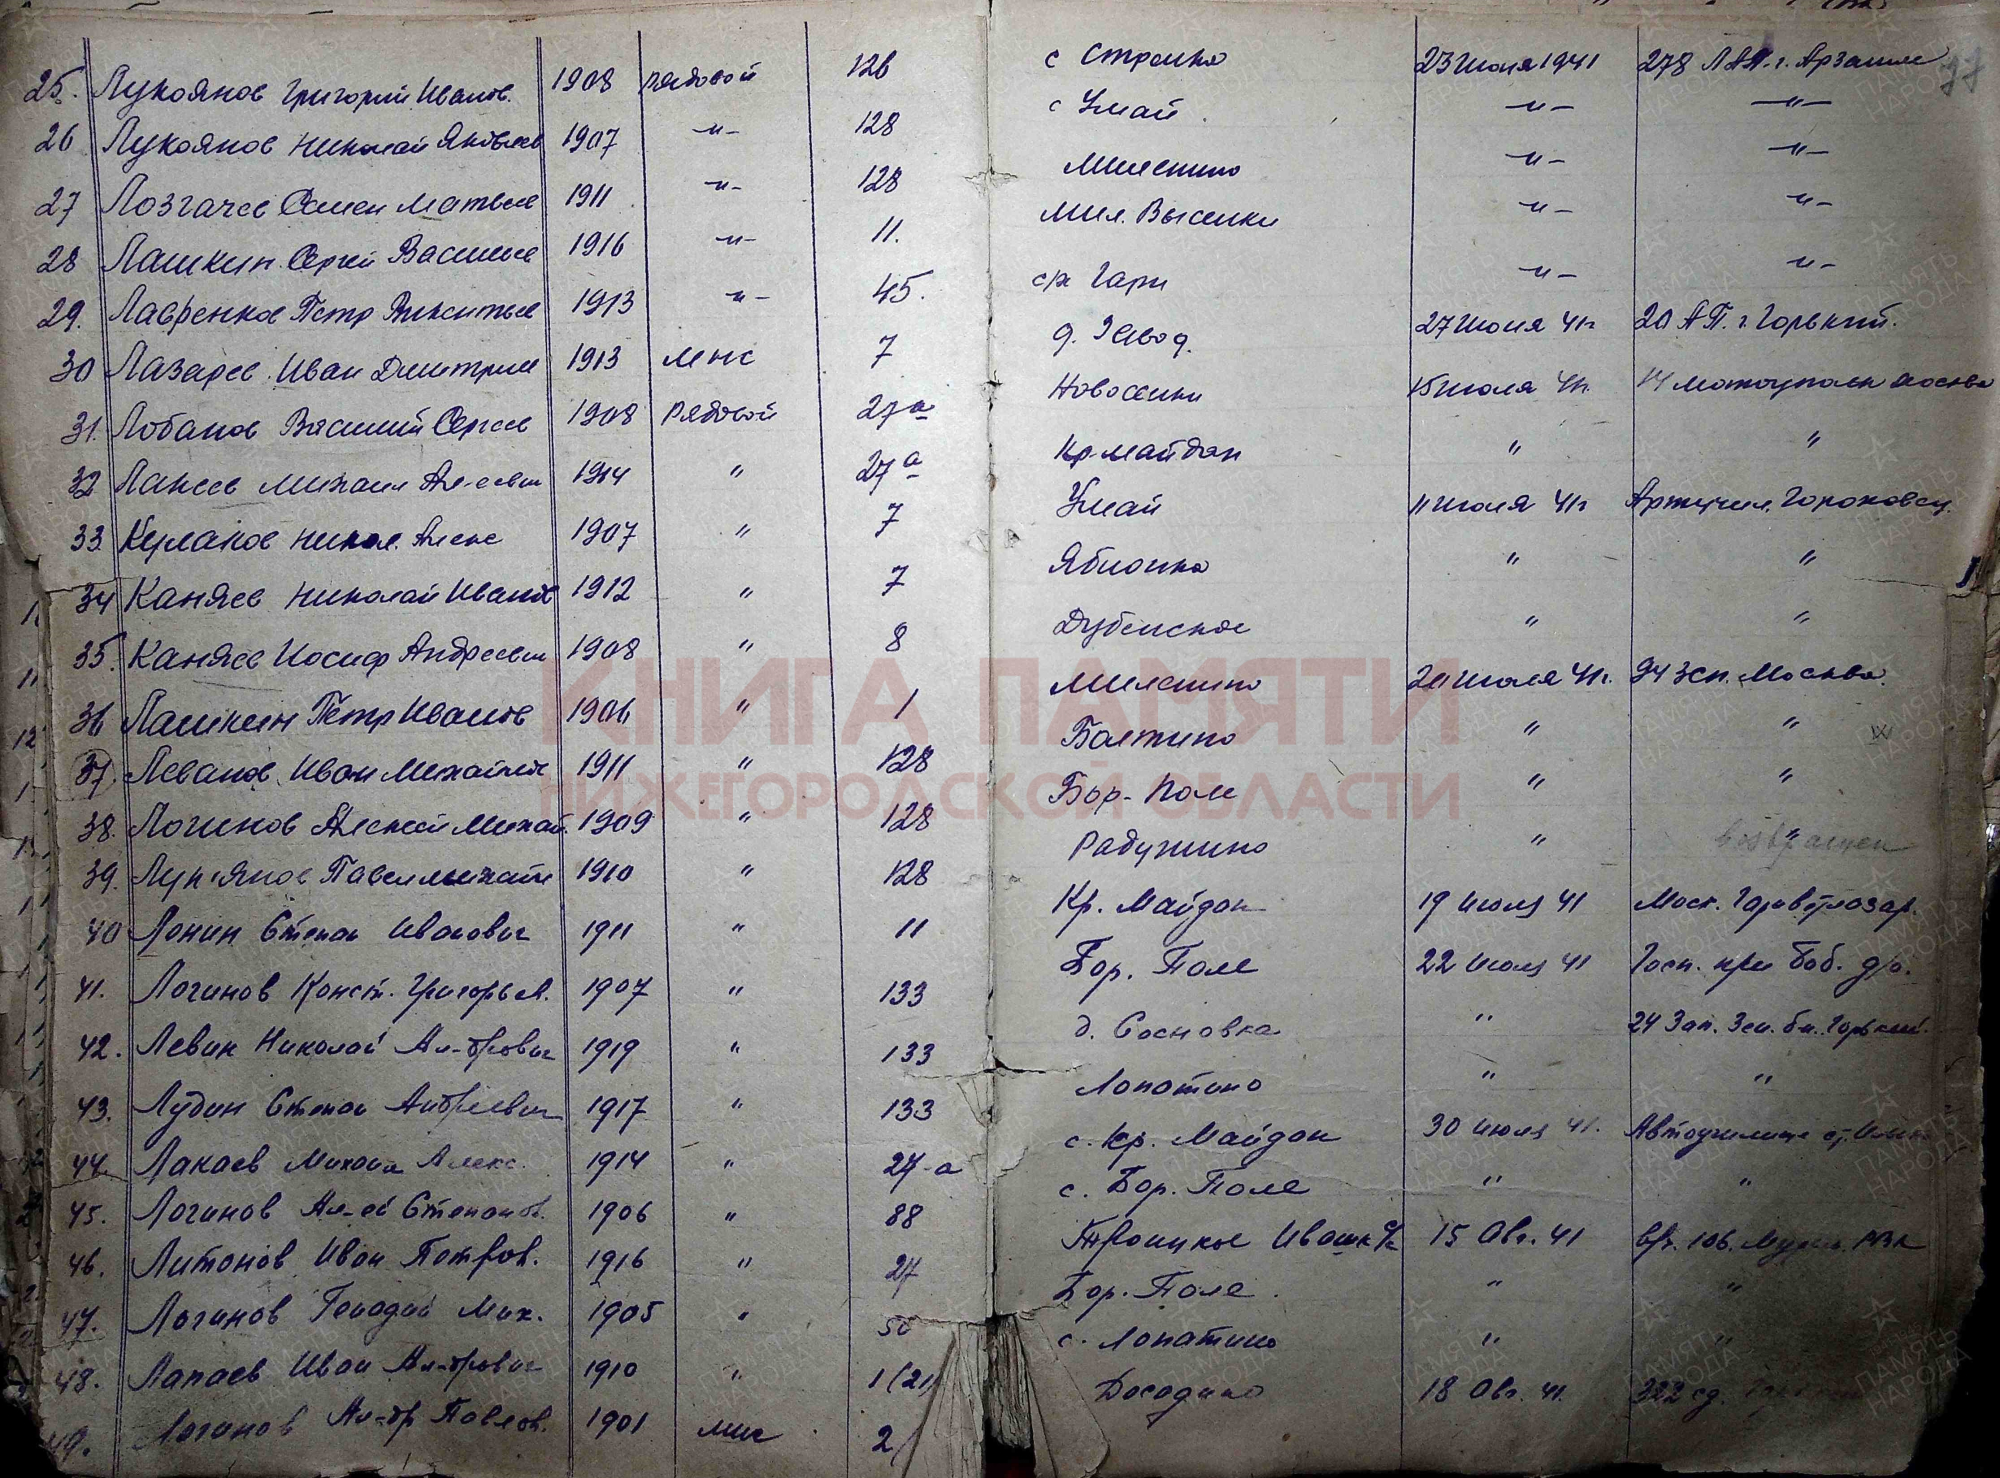 25. Лукоянов Григорий Иванов. 1908 рядовой 126 с Стрелка 23 Июля 1941 278 ЛАП. г. Арзамас
26 Лукоянов Николай Яковлев 1907 -"- 128 с Умай -"- -"-
27 Лозгачев Семен Матвеев 1911 -"- 128 -"- -"-
28 Лашкин Сергей Васильев 1916 -"- 11. -"- -"-
29. Петр 1913 -"- 45. с/х Гари -"- -"-
30 Лазарев Иван Дмитрие 1913 мнс 7 д. 27 Июля 41г 20 АП. г. Горький.
31. Лобанов Василий Сергеев 1908 рядовой 27а Новоселки 15 Июля 41г.
32 Михаил 1914 " 27а Кр-майдан " "
33. Никол. Алекс 1907 " 7 Умай 11 Июля 41г Гороховец.
34 Каняев Николай Иванов 1912 " 7 Яблонка " "
35. Каняев Иосиф Андреевич 1908 " 8 Дубенское " "
36 Лашкин Петр Иванов 1906 " 1 41г. 94 зсп. Москва.
37. Леванов Иван Михайлов 1911 " 128 Болтино " "
38. Логинов Алексей Михай. 1909 " 128 Бор-Поле " "
39. Павел Михайл 1910 " 128 Радушино " " возвращен
40 Лонин Степан Иванович 1911 " 11 Кр. Майдан 19 Июля 41 Моск.
41. Логинов Конст. Григорьев. 1907 " 133 Бор. Поле 22 Июля 41 Госп. при
42. Левин Николай Ал-дрович 1919 " 133 д. Сосновка " 24 Зап. Зен. бн. Горький.
43. Лудин Степан Андреевич 1917 " 133 Лопатино " "
44. Лакаев Михаил Алекс. 1914 " 27-а с. Кр. Майдан 30 Июля 41. Автоучилище
45. Логинов Ал-ей Степанов. 1906 " 88 с. Бор. Поле " "
46. Литонов Иван Петров. 1916 " 27 Троицкое 15 Авг. 41
47. Логинов Генадий Мих. 1905 " 50 Бор. Поле. " "
48. Лапаев Иван Ал-дрович 1910 " 1 (21) с. Лопатино " "
49. Логинов Ал-др Павлов. 1901 мнс 2 18 Авг. 41. 322 сд.
КНИГА ПАМЯТИ
НИЖЕГОРОДСКОЙ ОБЛАСТИ